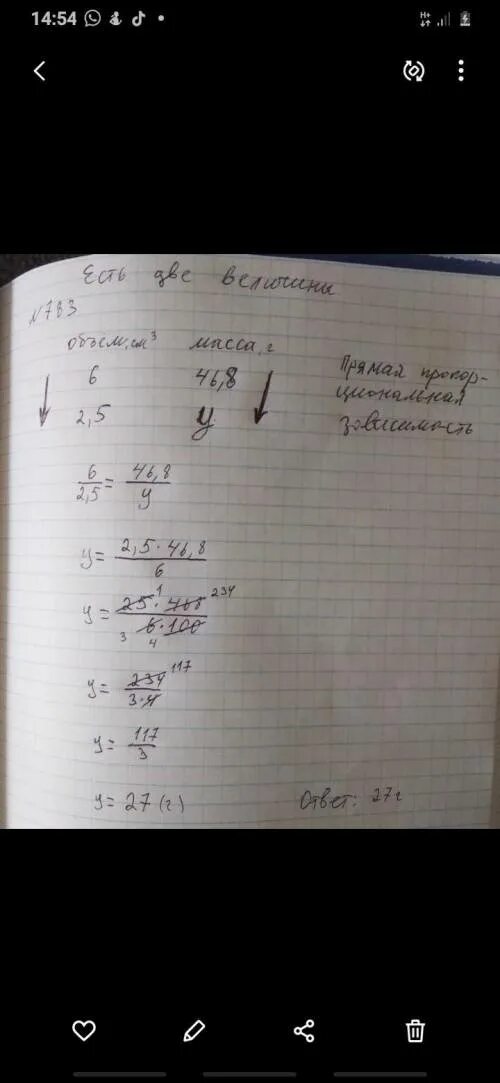 14:54
Есть две величины
№783
объем, см³ масса, г
6 46,8 Прямая пропор-
циональная
2,5 y зависимость
6/2,5 = 46,8/y
y = 2,5 · 46,8 / 6
y = 25 1 · 468 234 / 3 6 · 100 4
y = 234 117 / 3 · 4
y = 117/3
y = 27 (г) Ответ: 27 г